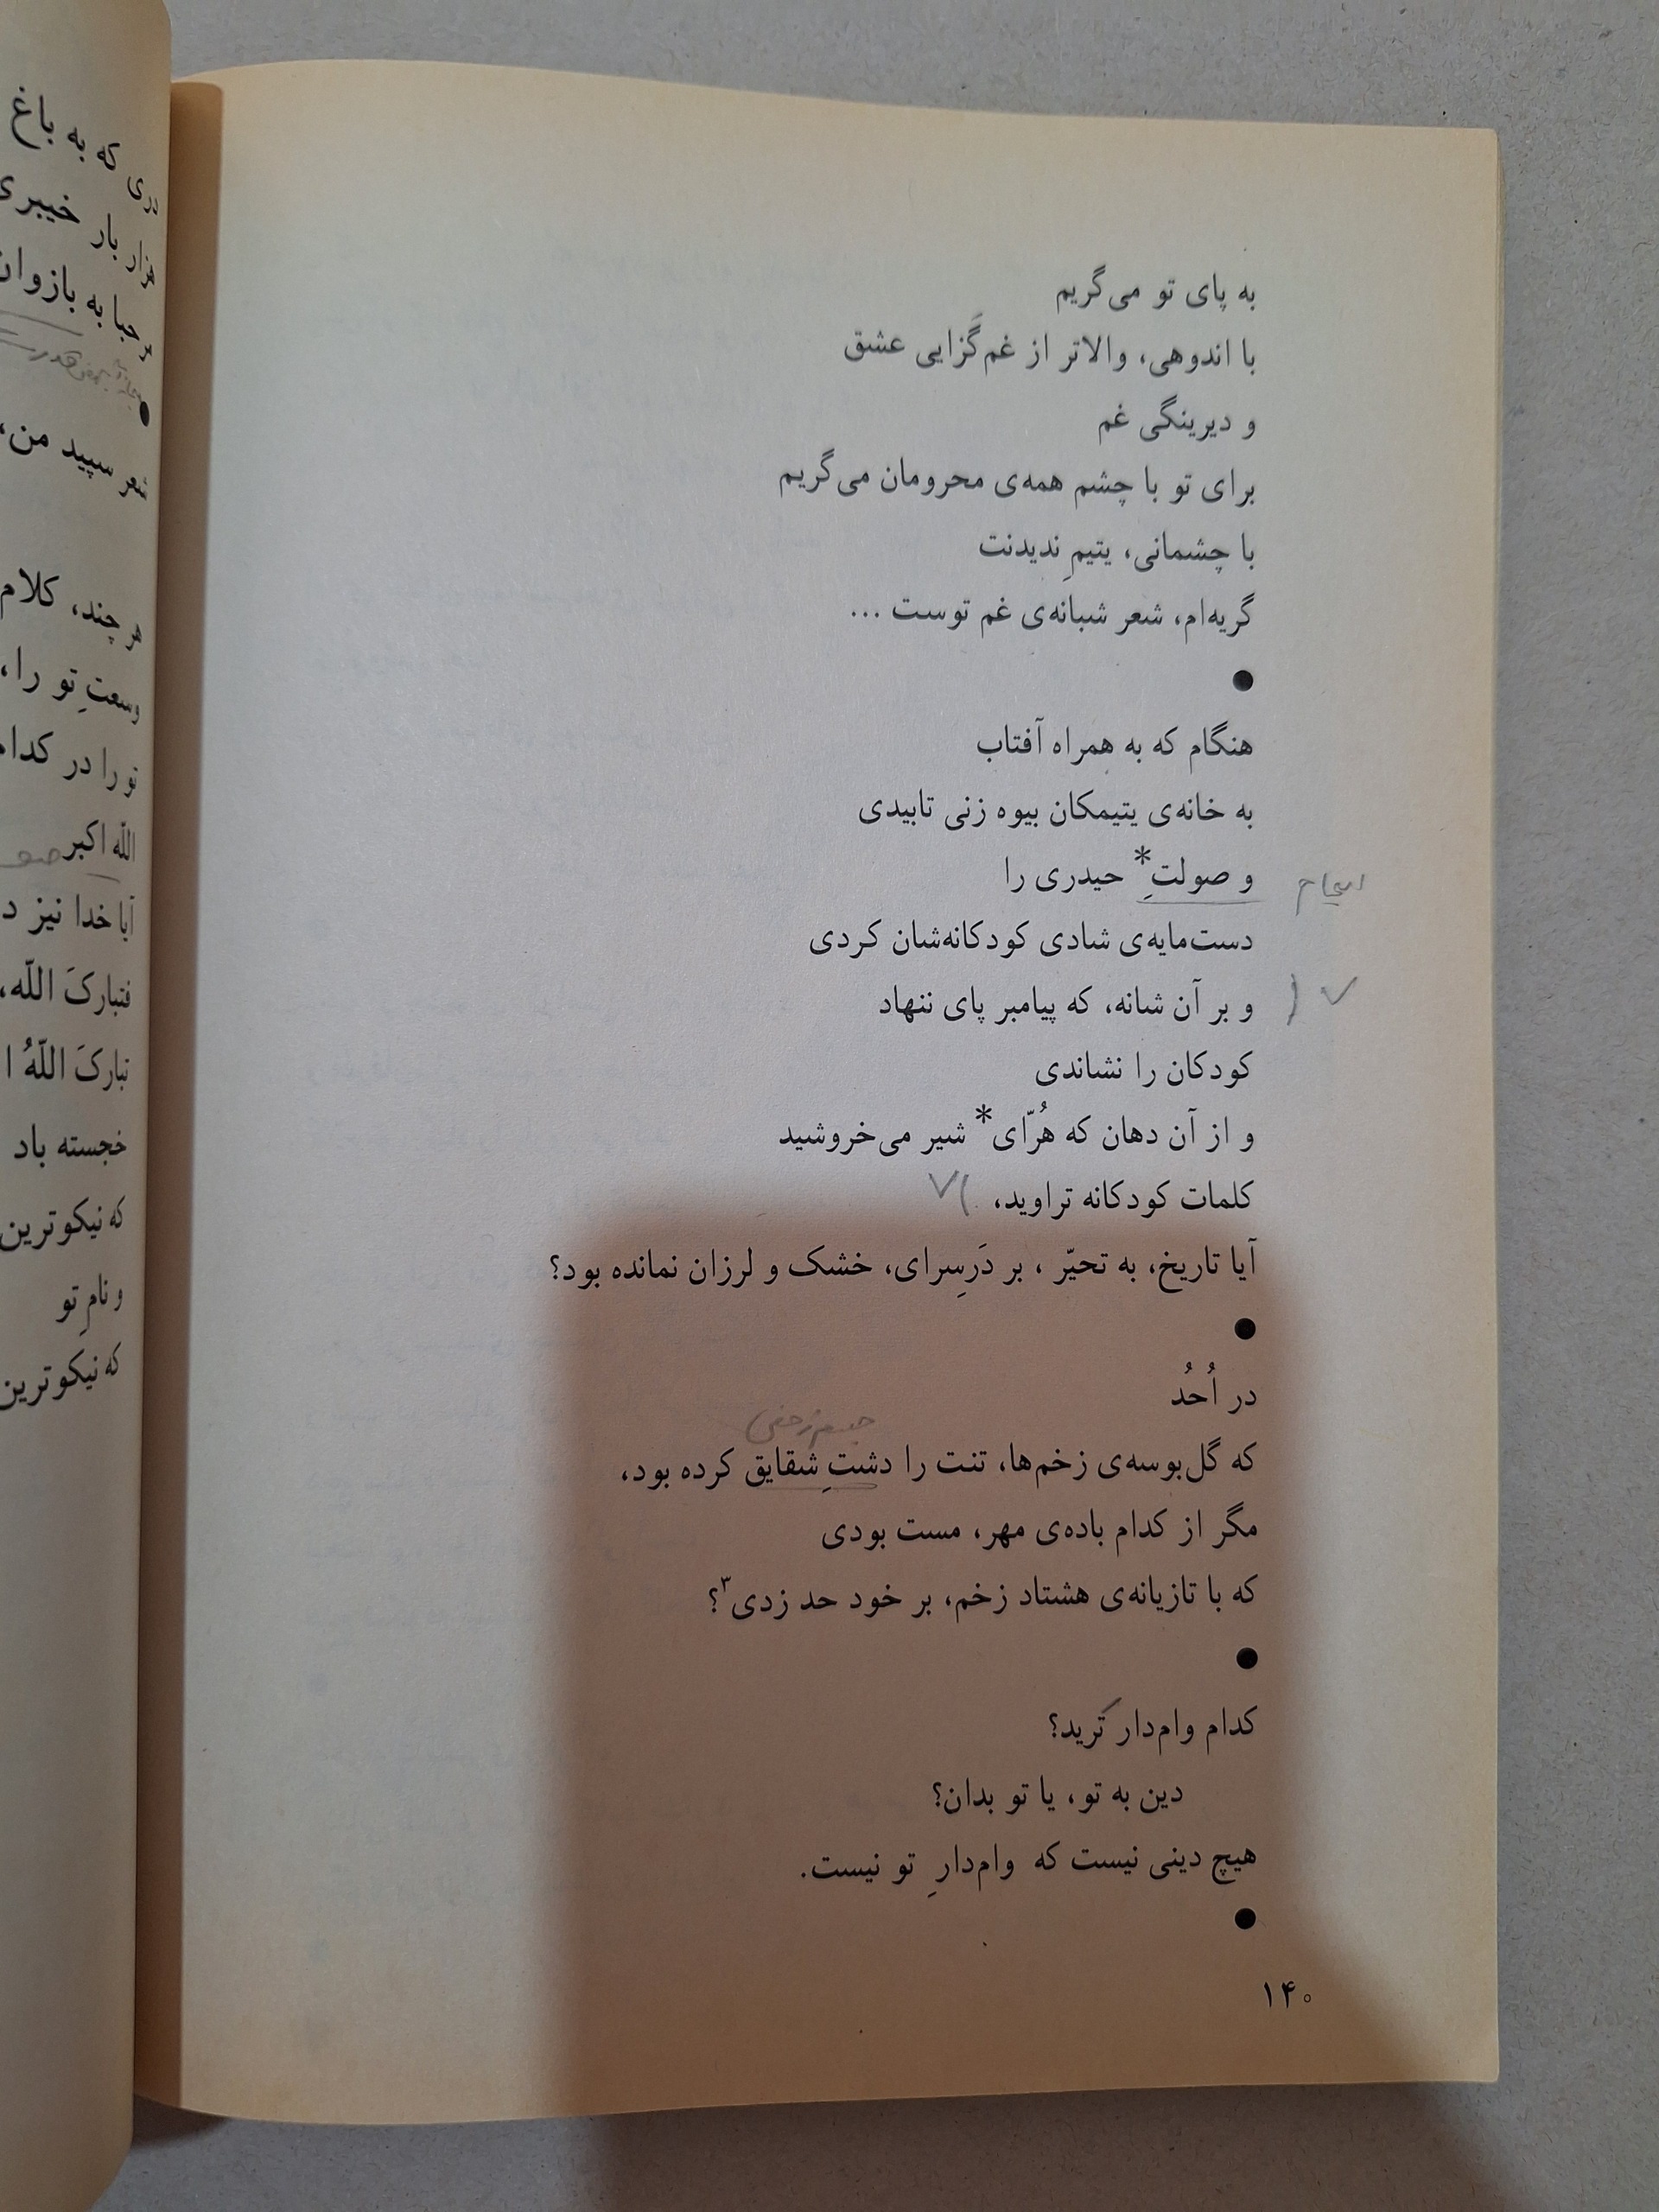 به پای تو می‌گریم
با اندوهی، والاتر از غم‌گَزایی عشق
و دیرینگی غم
برای تو با چشم همه‌ی محرومان می‌گریم
با چشمانی، یتیمِ ندیدنت
گریه‌ام، شعر شبانه‌ی غم توست ...
●
هنگام که به همراه آفتاب
به خانه‌ی یتیمکان بیوه زنی تابیدی
و صولتِ* حیدری را
دست‌مایه‌ی شادی کودکانه‌شان کردی
و بر آن شانه، که پیامبر پای ننهاد
کودکان را نشاندی
و از آن دهان که هُرّای* شیر می‌خروشید
کلمات کودکانه تراوید،
آیا تاریخ، به تحیّر ، بر دَرِسرای، خشک و لرزان نمانده بود؟
●
در اُحُد
که گل‌بوسه‌ی زخم‌ها، تنت را دشتِ شقایق کرده بود،
مگر از کدام باده‌ی مهر، مست بودی
که با تازیانه‌ی هشتاد زخم، بر خود حد زدی۳؟
●
کدام وام‌دار تَرید؟
دین به تو، یا تو بدان؟
هیچ دینی نیست که وام‌دارِ تو نیست.
●
۱۴۰
ری که به باغ
هزار بار خیبری
مرحبا به بازوان
●
شعر سپید من،
هر چند، کلام
وسعتِ تو را،
تو را در کدام
اللّه اکبر
آیا خدا نیز د
فتبارکَ اللّه،
تبارکَ اللّهُ ا
خجسته باد
که نیکوترین
و نامِ تو
که نیکوترین